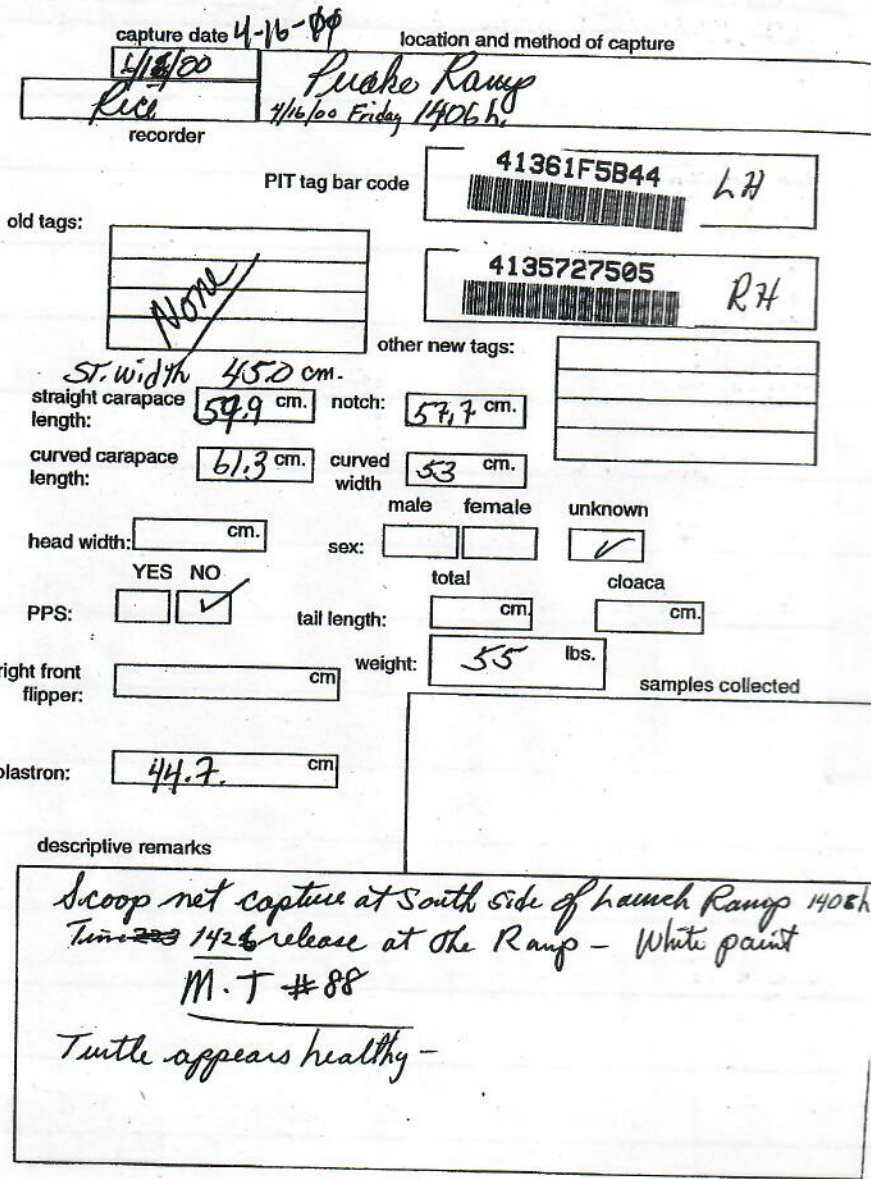 capture date 4-16-00 location and method of capture
4/16/00 Puako Ramp
Rice 4/16/00 Friday 1406h.
recorder
PIT tag bar code 41361F5B44 LH
old tags:
None
4135727505 RH
other new tags:
ST. width 45.0 cm.
straight carapace length: 59.9 cm. notch: 57.7 cm.
curved carapace length: 61.3 cm. curved width 53 cm.
male female unknown
head width: cm. sex: ✓
YES NO total cloaca
PPS: ✓ tail length: cm. cm.
weight: 55 lbs.
right front flipper: cm
samples collected
plastron: 44.7. cm
descriptive remarks
Scoop net capture at South side of Launch Ramp 1406h
Time release at the Ramp - White paint
M.T #88
Turtle appears healthy -